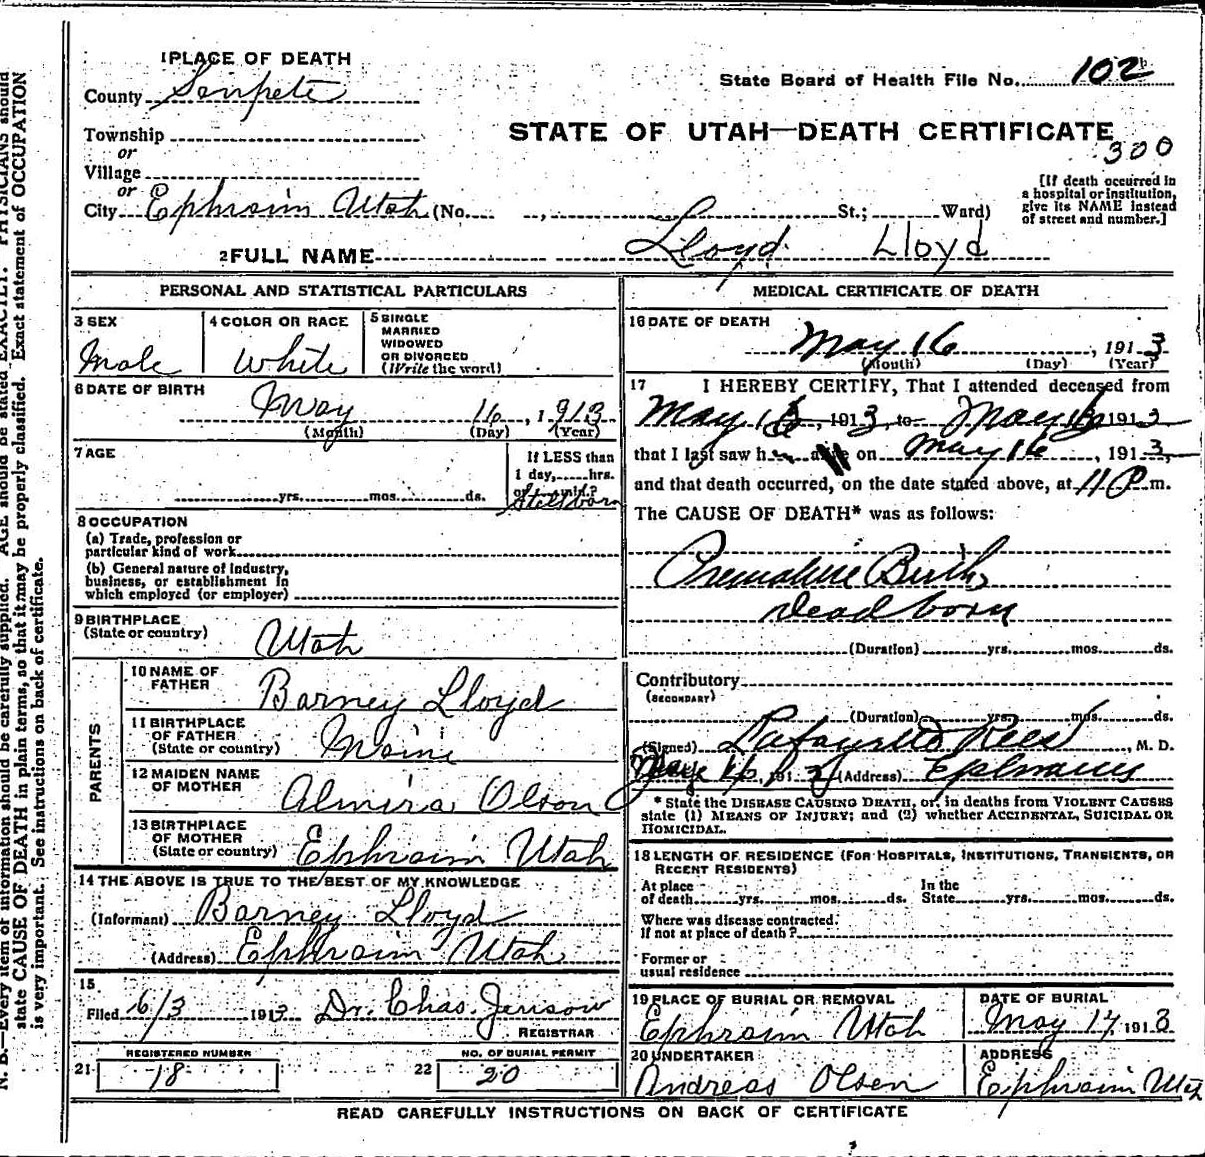 1 PLACE OF DEATH
County Sanpete
State Board of Health File No. 102
Township
or
Village
or
City Ephraim Utah (No. , St.; Ward)
STATE OF UTAH—DEATH CERTIFICATE
300
[If death occurred in
a hospital or institution,
give its NAME instead
of street and number.]
2 FULL NAME Lloyd Lloyd
PERSONAL AND STATISTICAL PARTICULARS
3 SEX
Male
4 COLOR OR RACE
White
5 SINGLE
MARRIED
WIDOWED
OR DIVORCED
(Write the word)
6 DATE OF BIRTH
May 16, 1913
(Month) (Day) (Year)
7 AGE
yrs. mos. ds.
If LESS than
1 day, hrs.
or min.?
Stillborn
8 OCCUPATION
(a) Trade, profession or
particular kind of work
(b) General nature of industry,
business, or establishment in
which employed (or employer)
9 BIRTHPLACE
(State or country)
Utah
PARENTS
10 NAME OF
FATHER
Barney Lloyd
11 BIRTHPLACE
OF FATHER
(State or country)
Maine
12 MAIDEN NAME
OF MOTHER
Almira Olson
13 BIRTHPLACE
OF MOTHER
(State or country)
Ephraim Utah
14 THE ABOVE IS TRUE TO THE BEST OF MY KNOWLEDGE
(Informant) Barney Lloyd
(Address) Ephraim Utah
15
Filed 6/3 1913 Dr. Chas. Jenson
REGISTRAR
REGISTERED NUMBER
21 18
NO. OF BURIAL PERMIT
22 20
MEDICAL CERTIFICATE OF DEATH
16 DATE OF DEATH
May 16, 1913
(Month) (Day) (Year)
17 I HEREBY CERTIFY, That I attended deceased from
May 16, 1913, to May 16 1913
that I last saw h alive on May 16, 1913,
and that death occurred, on the date stated above, at 11 P m.
The CAUSE OF DEATH* was as follows:
Premature Birth,
dead born
(Duration) yrs. mos. ds.
Contributory
(SECONDARY)
(Duration) yrs. mos. ds.
(Signed) Lafayette Rees, M. D.
191 (Address) Ephraim
* State the DISEASE CAUSING DEATH, or, in deaths from VIOLENT CAUSES
state (1) MEANS OF INJURY; and (2) whether ACCIDENTAL, SUICIDAL OR
HOMICIDAL.
18 LENGTH OF RESIDENCE (FOR HOSPITALS, INSTITUTIONS, TRANSIENTS, OR
RECENT RESIDENTS)
At place
of death yrs. mos. ds.
In the
State yrs. mos. ds.
Where was disease contracted.
If not at place of death?
Former or
usual residence
19 PLACE OF BURIAL OR REMOVAL
Ephraim Utah
DATE OF BURIAL
May 17, 1913
20 UNDERTAKER
Andreas Olsen
ADDRESS
Ephraim Utah
READ CAREFULLY INSTRUCTIONS ON BACK OF CERTIFICATE
N. B.—Every item of information should be carefully supplied. AGE should be stated EXACTLY. PHYSICIANS should
state CAUSE OF DEATH in plain terms, so that it may be properly classified. Exact statement of OCCUPATION
is very important. See instructions on back of certificate.